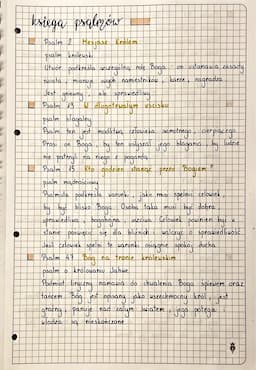 księga psalmów
Psalm 2 Mesjasz Królem
psalm królewski
Utwór podkreśla szczególną rolę Boga on ustanawia zasady
świata, mianuje swych namiestników, karze, nagradza
Jest groźny, ale sprawiedliwy
Psalm 13 W długotrwałym ucisku
psalm błagalny
Psalm ten jest modlitwą człowieka samotnego, cierpiącego
Prosi on Boga, by ten wysłuchał jego błagania, by ludzie
nie patrzyli na niego z pogardą
Psalm 15 Kto godzien stanąć przed Bogiem?
psalm mądrościowy
Psalmista podkreśla warunki, jakie musi spełnić człowiek,
by być blisko Boga Osoba taka musi być dobra,
sprawiedliwa, bogobojna, uczciwa Człowiek powinien być w
stanie poświęcić się dla bliźnich i walczyć o sprawiedliwość
Jeśli człowiek spełni te warunki osiągnie spokój ducha
Psalm 47 Bóg na tronie królewskim
psalm o królowaniu Jahwe
Podmiot liryczny namawia do chwalenia Boga śpiewem oraz
tańcem Bóg jest opisany jako wszechmocny król, jest
groźny, panuje nad całym światem, jego potęga
władza są nieskończone